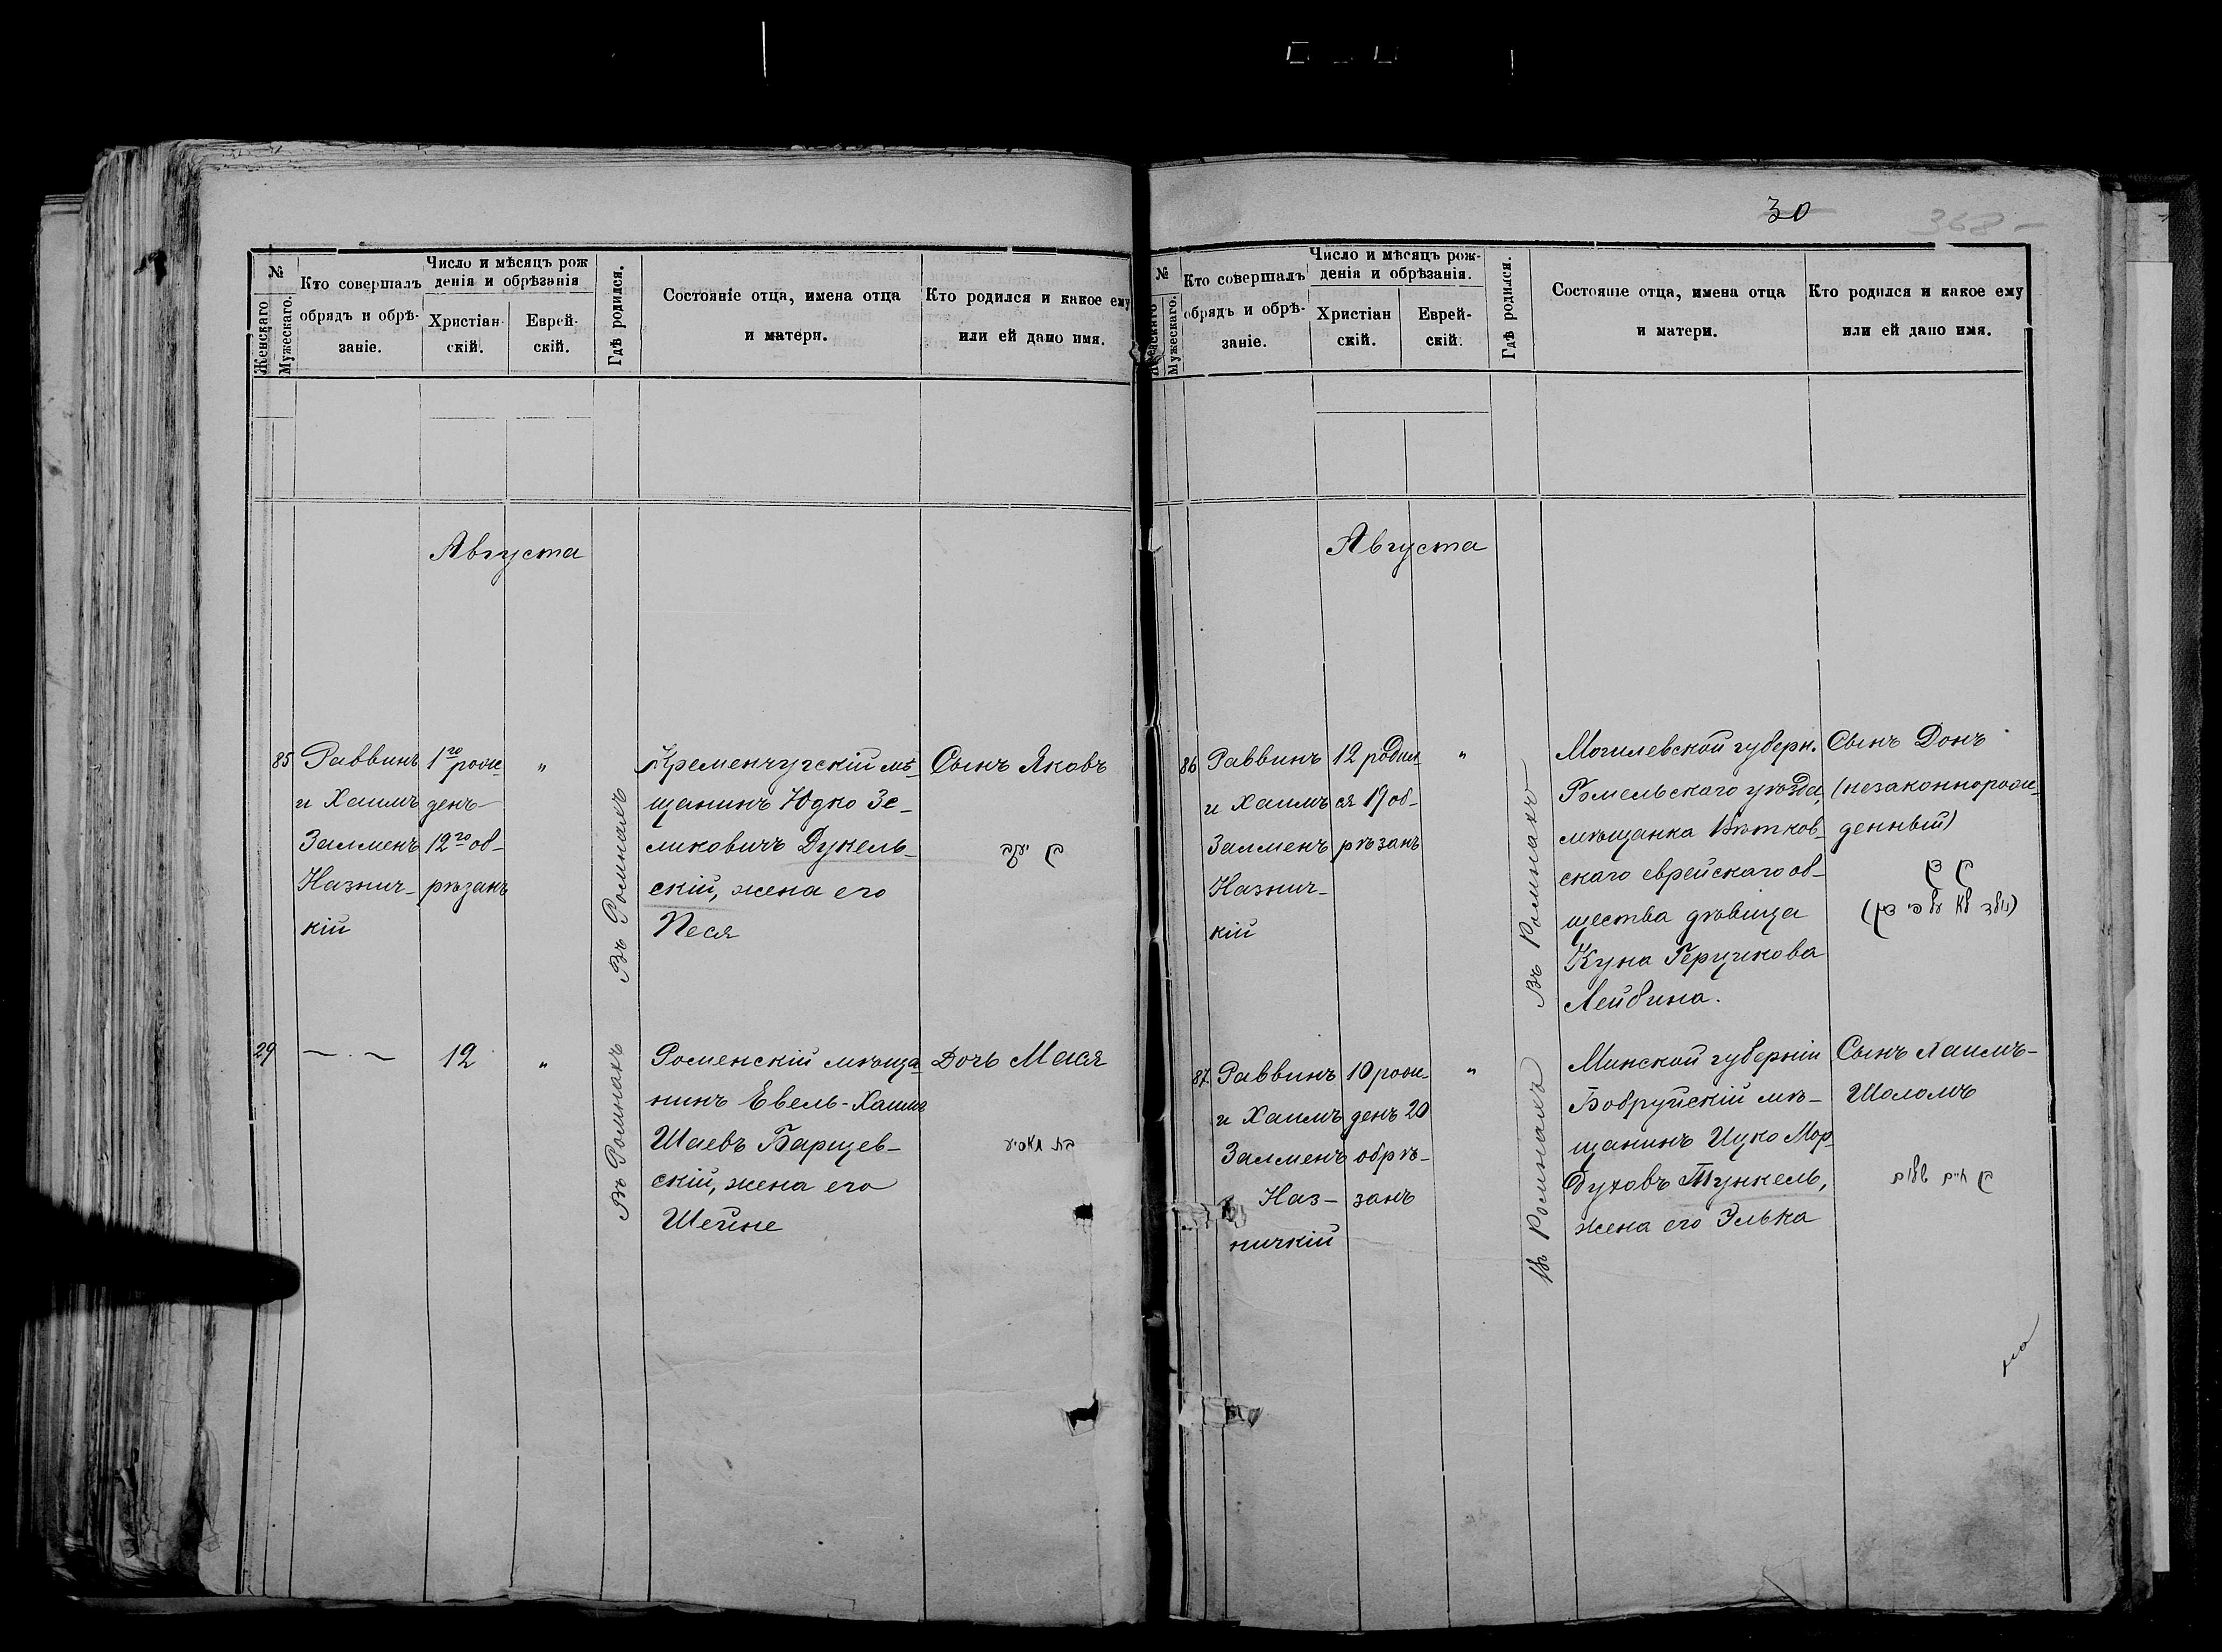 №
Женскаго
Мужескаго.
Кто совершалъ
обрядъ и обрѣ-
заніе.
Число и мѣсяцъ рож
денія и обрѣзанія
Христіан-
скій.
Еврей-
скій.
Гдѣ родился.
Состояніе отца, имена отца
и матери.
Кто родился и какое ему
или ей дано имя.
Августа
85
Раввинъ
и Хаимъ
Залменъ
Назнич-
кій
1го рож-
денъ
12го об-
рѣзанъ
"
Въ Ромнахъ
Кременчугскій мѣ-
щанинъ Юдко Зе-
ликовичъ Дукель-
скій, жена его
Песя
Сынъ Яковъ
בן יעקב
29
12
"
Въ Ромнахъ
Роменскій мѣща-
нинъ Евель-Хаимъ
Шаевъ Барщев-
скій, жена его
Шейне
Дочь Мася
בת מאסיע
30
368
№
Женскаго
Мужескаго.
Кто совершалъ
обрядъ и обрѣ-
заніе.
Число и мѣсяцъ рож-
денія и обрѣзанія.
Христіан
скій.
Еврей-
скій.
Гдѣ родился.
Состояніе отца, имена отца
и матери.
Кто родился и какое ему
или ей дано имя.
Августа
86
Раввинъ
и Хаимъ
Залменъ
Назнич-
кій
12 родил-
ся 19 об-
рѣзанъ
"
Въ Ромнахъ
Могилевской губерн.
Гомельскаго уѣзда,
мѣщанка Вѣтков-
скаго еврейскаго об-
щества дѣвица
Куна Герцикова
Лейбина.
Сынъ Донъ
(незаконнорож-
денный)
בן דן
(נולד לא על פי דין)
87
Раввинъ
и Хаимъ
Залменъ
Наз-
ничкій
10 рож-
денъ 20
обрѣ-
занъ
"
Въ Ромнахъ
Минской губерніи
Бобруйскій мѣ-
щанинъ Ицко Мор-
духовъ Тункель,
жена его Элька
Сынъ Хаимъ-
Шоломъ
בן חיים שלום